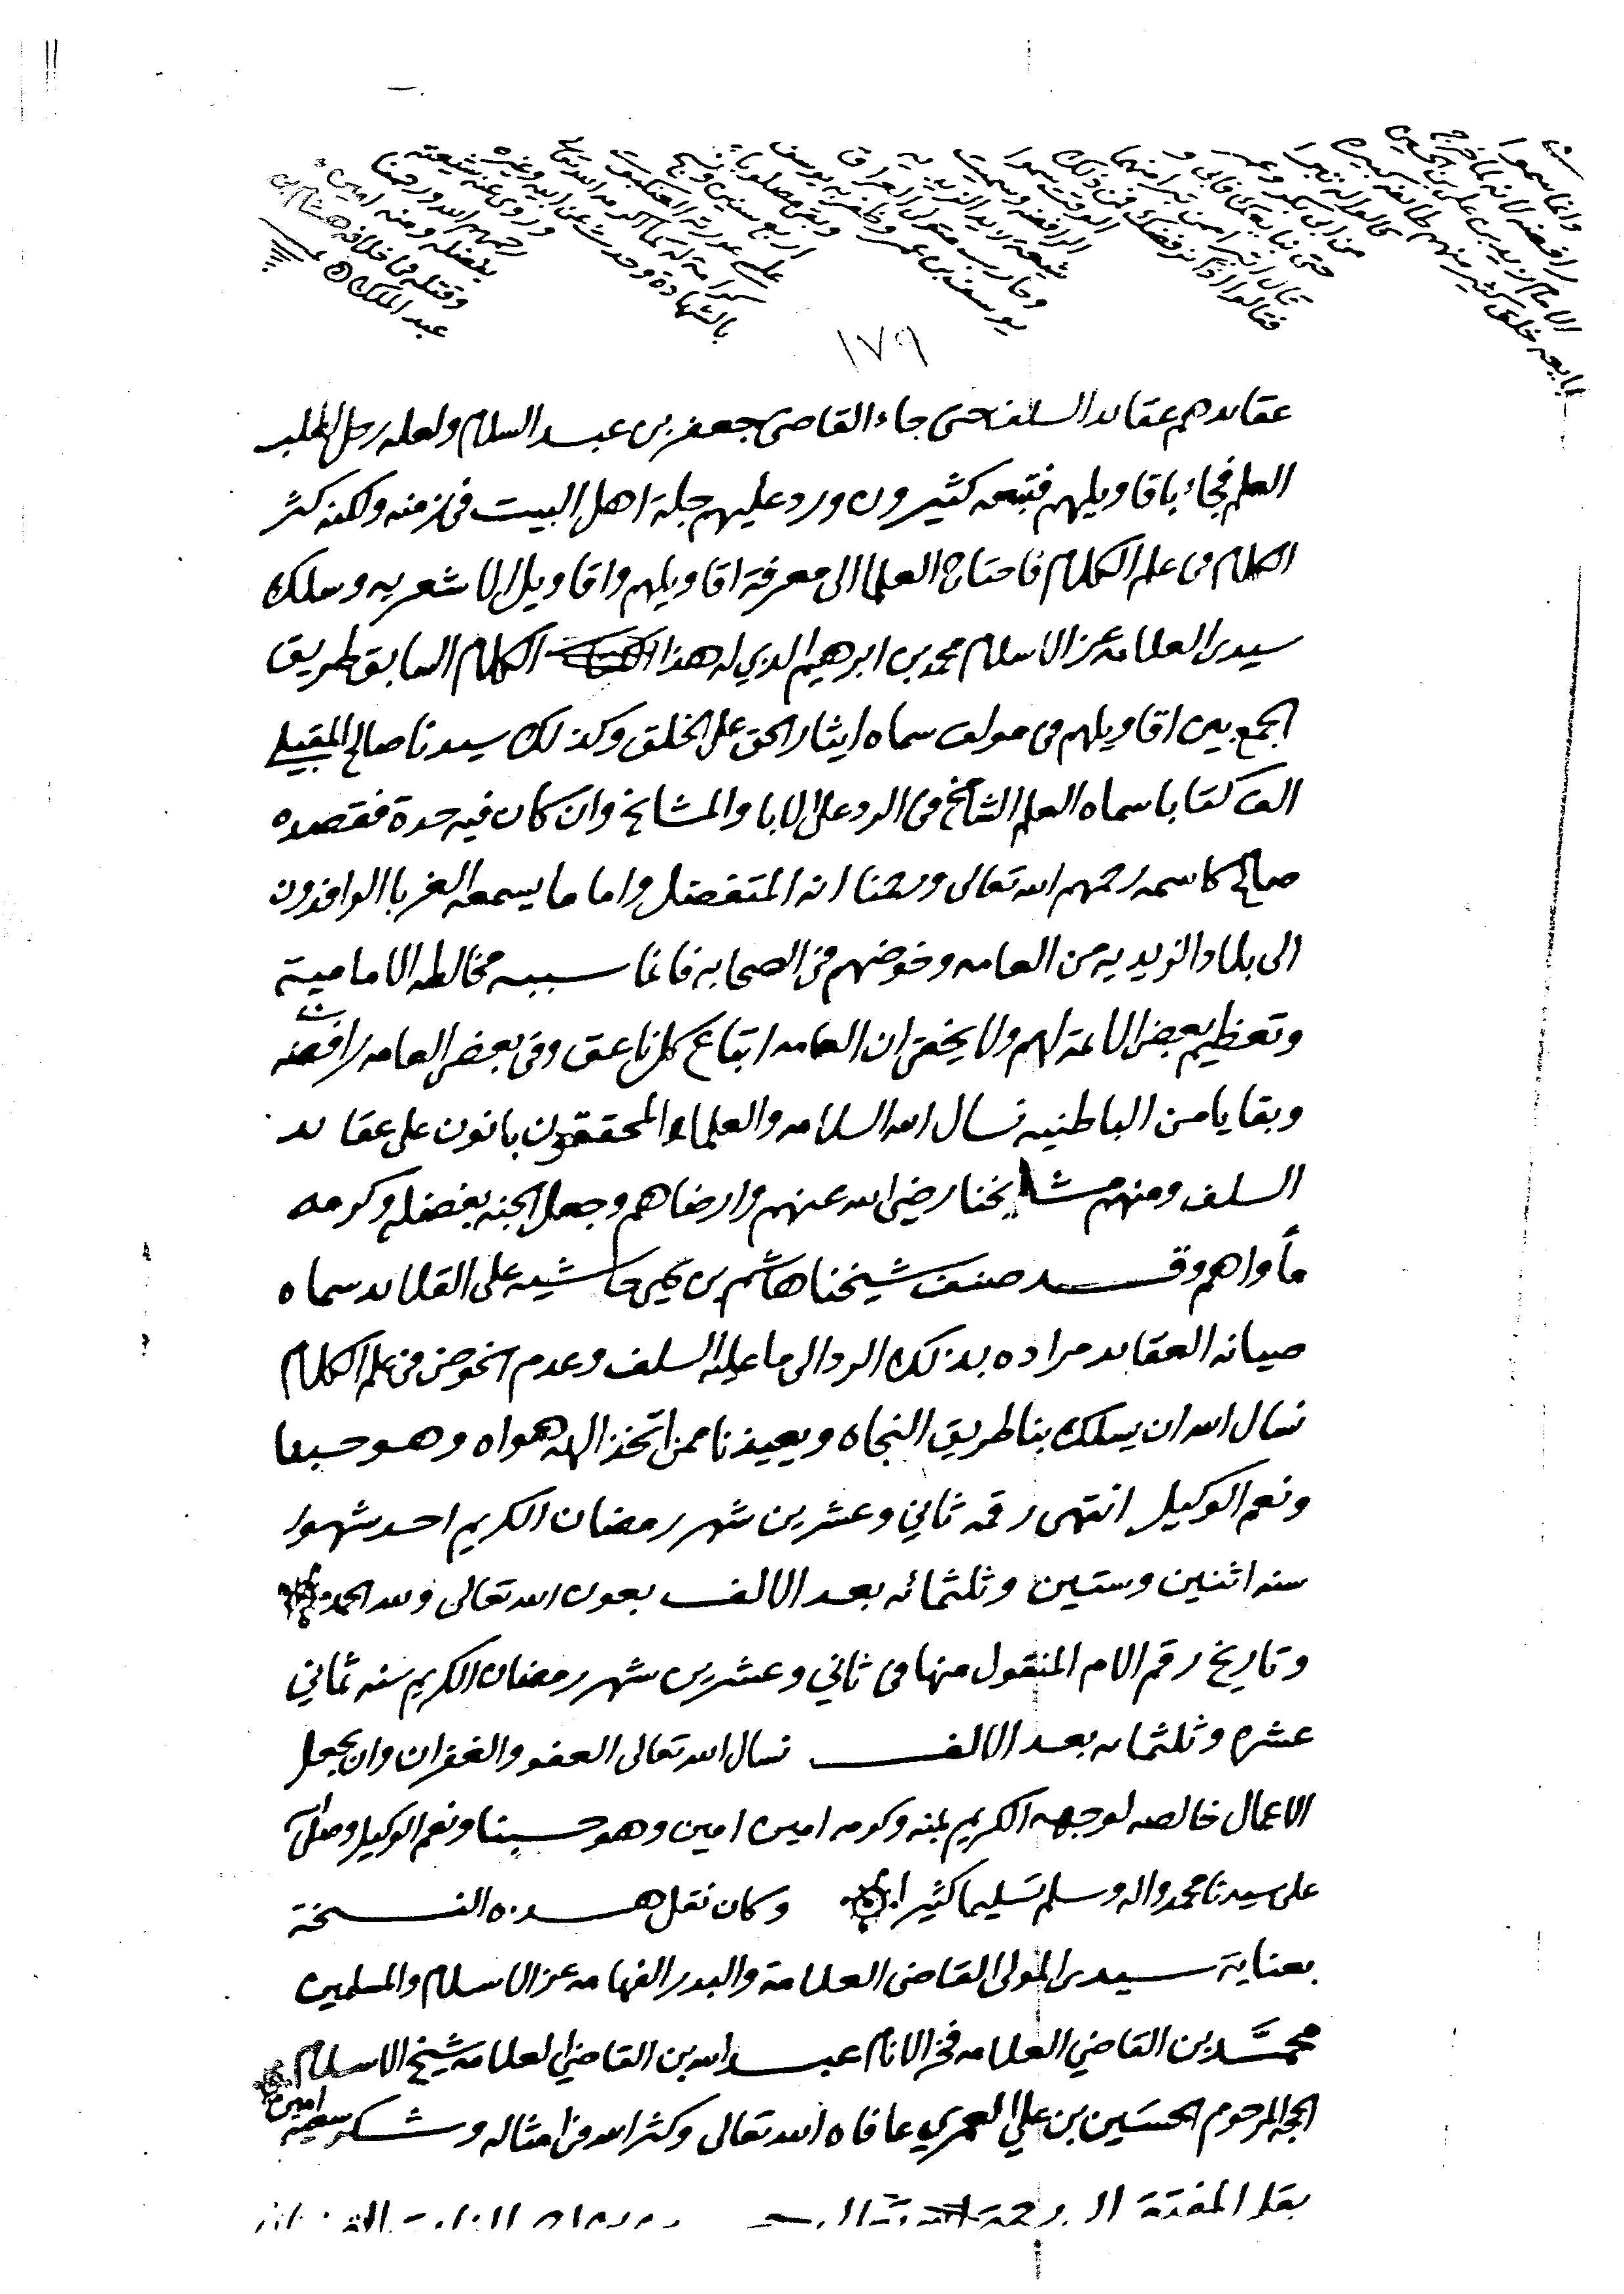 وانما سموا
رافضه لانه لما خرج
الامام زيد بن علي بن الحسين
بايعه خلق كثير منهم طائفه كبيره
قالوا له تبرا
من ابي بكر وعمر
حتى نبايعك فابى و
قال اتبرا ممن تبرا منهما
فقالوا اذا نرفضك فمن ذلك
الوقت سموا
الرافضة وسميت
شيعة زيد الزيديه
وحارب متولى العراق
يوسف بن عمر وظفر به يوسف
وبقي مصلوبا
اربع سنين ونسج
على عورته العنكبوت
كرامة له كما اكرمه الله تعالى
بالشهادة وحدث عن ابيه وغيره
وروى عنه شيعته
رحمهم الله ورحمنا
بفضله ومنه امين
وقتله في خلافة هشام بن
عبد الملك
١٧٩
عقايدهم عقايد السلف حتى جاء القاضي جعفر بن عبد السلام ولعله رحل لطلب
العلم فجاء باقاويلهم فتبعه كثيرون ورد عليهم جلة اهل البيت في زمنه ولكنه كثر
الكلام في علم الكلام فاحتاج العلما الى معرفة اقاويلهم واقاويل الاشعريه وسلك
سيدي العلامه عز الاسلام محمد بن ابرهيم الذي له هذا الكلام السابق طريق
الجمع بين اقاويلهم في مولف سماه ايثار الحق على الخلق وكذلك سيدنا صالح المقبلي
الف كتابا سماه العلم الشامخ في الرد على الابا والمشايخ وان كان فيه حدة فقصده
صالح كاسمه رحمهم الله تعالى ورحمنا انه المتفضل واما ما يسمعه الغربا الوافدون
الى بلاد الزيديه من العامه وخوضهم في الصحابه فانما سببه مخالطه الامامية
وتعظيم بعض الائمة لهم ولا يخفى ان العامه اتباع كل ناعق وفي بعض العامه رافضه
وبقايا من الباطنيه نسال الله السلامه والعلماء المحققون باقون على عقايد
السلف ومنهم مشايخنا رضي الله عنهم وارضاهم وجعل الجنه بفضله وكرمه
مأواهم وقد صنف شيخنا هاشم بن يحيى حاشيه على القلائد سماه
صيانه العقايد مراده بذلك الرد الى ما عليه السلف وعدم الخوض في علم الكلام
نسال الله ان يسلك بنا طريق النجاه ويعيذنا ممن اتخذ الهه هواه وهو حسبنا
ونعم الوكيل انتهى رقمه ثاني وعشرين شهر رمضان الكريم احد شهور
سنه اثنين وستين وثلثمائه بعد الالف بعون الله تعالى ولله الحمد
وتاريخ رقم الام المنقول منها في ثاني وعشرين شهر رمضان الكريم سنه ثماني
عشره وثلثمايه بعد الالف نسال الله تعالى العفو والغفران وان يجعل
الاعمال خالصه لوجهه الكريم بمنه وكرمه امين امين وهو حسبنا ونعم الوكيل وصلى الله
على سيدنا محمد واله وسلم تسليما كثيرا وكان نقل هذه النسخة
بعناية سيدي المولى القاضي العلامة والبدر الفهامه عز الاسلام والمسلمين
محمد بن القاضي العلامه فخر الانام عبد الله بن القاضي العلامه شيخ الاسلام
الحجه المرحوم الحسين بن علي العمري عافاه الله تعالى وكثر الله من امثاله وشكر سعيه امين
بقلم المفتقر الى رحمة الله